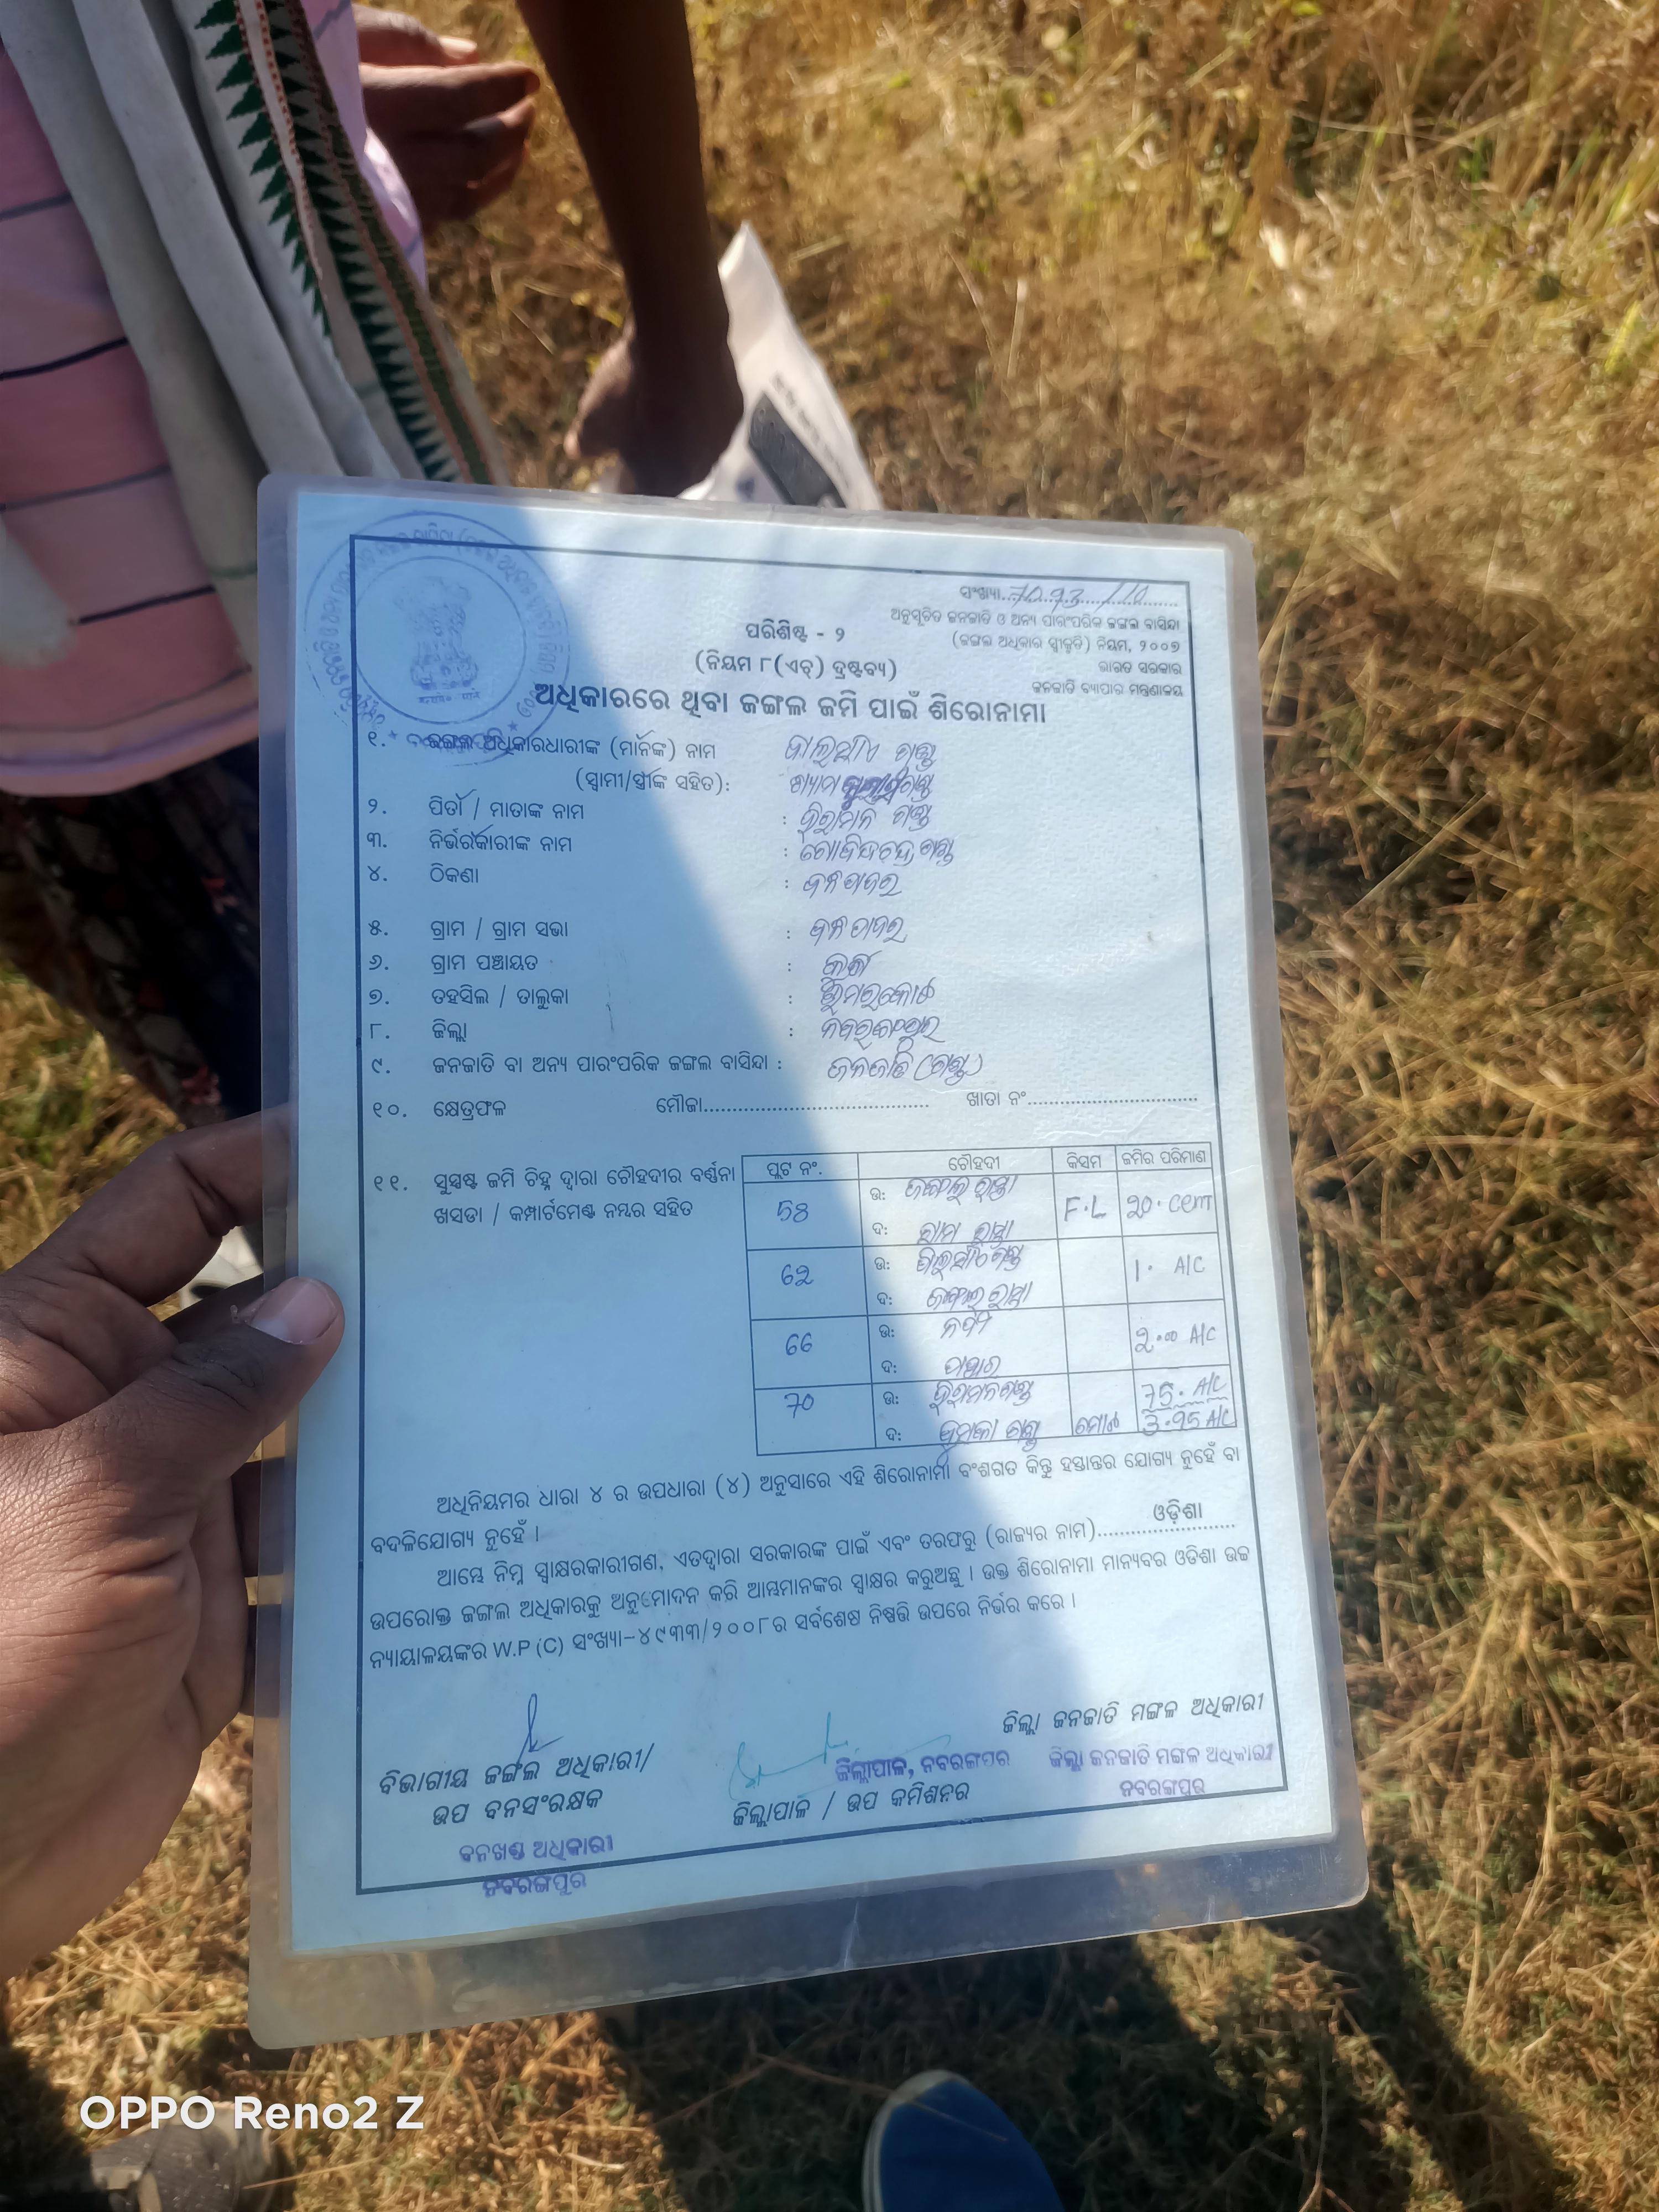 ସଂଖ୍ୟା...7093/10
ଅନୁସୂଚିତ ଜନଜାତି ଓ ଅନ୍ୟ ପାରଂପରିକ ଜଙ୍ଗଲ ବାସିନ୍ଦା
(ଜଙ୍ଗଲ ଅଧିକାର ସ୍ୱୀକୃତି) ନିୟମ, ୨୦୦୭
ଭାରତ ସରକାର
ଜନଜାତି ବ୍ୟାପାର ମନ୍ତ୍ରଣାଳୟ
ପରିଶିଷ୍ଟ - ୨
(ନିୟମ ୮(ଏଚ୍) ଦ୍ରଷ୍ଟବ୍ୟ)
ଅଧିକାରରେ ଥିବା ଜଙ୍ଗଲ ଜମି ପାଇଁ ଶିରୋନାମା
୧. ଜଙ୍ଗଲ ଅଧିକାରଧାରୀଙ୍କ (ମାନଙ୍କ) ନାମ ଗଣ୍ଡ
(ସ୍ୱାମୀ/ସ୍ତ୍ରୀଙ୍କ ସହିତ):
୨. ପିତା / ମାତାଙ୍କ ନାମ : ହିରାମନ ଗଣ୍ଡ
୩. ନିର୍ଭରକାରୀଙ୍କ ନାମ : ଗୋବିନ୍ଦଚନ୍ଦ୍ର ଗଣ୍ଡ
୪. ଠିକଣା :
୫. ଗ୍ରାମ / ଗ୍ରାମ ସଭା :
୬. ଗ୍ରାମ ପଞ୍ଚାୟତ :
୭. ତହସିଲ / ତାଲୁକା : ଉମରକୋଟ
୮. ଜିଲ୍ଲା : ନବରଙ୍ଗପୁର
୯. ଜନଜାତି ବା ଅନ୍ୟ ପାରଂପରିକ ଜଙ୍ଗଲ ବାସିନ୍ଦା : ଜନଜାତି (ଗଣ୍ଡ)
୧୦. କ୍ଷେତ୍ରଫଳ ମୌଜା........ ଖାତା ନଂ........
୧୧. ସୁସ୍ପଷ୍ଟ ଜମି ଚିହ୍ନ ଦ୍ୱାରା ଚୌହଦୀର ବର୍ଣ୍ଣନା
ଖସଡା / କମ୍ପାର୍ଟମେଣ୍ଟ ନମ୍ବର ସହିତ
ପ୍ଲଟ ନଂ. ଚୌହଦୀ କିସମ ଜମିର ପରିମାଣ
58 ଉ: ଜଙ୍ଗଲ ରାସ୍ତା F.L 20. cent
ଦ: ଗ୍ରାମ ରାସ୍ତା
62 ଉ: ଗଣ୍ଡ 1. A/C
ଦ: ଜଙ୍ଗଲ ରାସ୍ତା
66 ଉ: ନଦୀ 2.00 A/C
ଦ: ପାହାଡ
70 ଉ: ହିରାମନ ଗଣ୍ଡ 75. A/C
ଦ: ଗଣ୍ଡ ମୋଟ 3.95 A/C
ଅଧିନିୟମର ଧାରା ୪ ର ଉପଧାରା (୪) ଅନୁସାରେ ଏହି ଶିରୋନାମା ବଂଶଗତ କିନ୍ତୁ ହସ୍ତାନ୍ତର ଯୋଗ୍ୟ ନୁହେଁ ବା
ବଦଳିଯୋଗ୍ୟ ନୁହେଁ ।
ଆମ୍ଭେ ନିମ୍ନ ସ୍ୱାକ୍ଷରକାରୀଗଣ, ଏତଦ୍ୱାରା ସରକାରଙ୍କ ପାଇଁ ଏବଂ ତରଫରୁ (ରାଜ୍ୟର ନାମ)......ଓଡ଼ିଶା......
ଉପରୋକ୍ତ ଜଙ୍ଗଲ ଅଧିକାରକୁ ଅନୁମୋଦନ କରି ଆମ୍ଭମାନଙ୍କର ସ୍ୱାକ୍ଷର କରୁଅଛୁ । ଉକ୍ତ ଶିରୋନାମା ମାନ୍ୟବର ଓଡିଶା ଉଚ୍ଚ
ନ୍ୟାୟାଳୟଙ୍କର W.P (C) ସଂଖ୍ୟା-୪୯୩୩/୨୦୦୮ର ସର୍ବଶେଷ ନିଷ୍ପତ୍ତି ଉପରେ ନିର୍ଭର କରେ ।
ଜିଲ୍ଲା ଜନଜାତି ମଙ୍ଗଳ ଅଧିକାରୀ
ଜିଲ୍ଲା ଜନଜାତି ମଙ୍ଗଳ ଅଧିକାରୀ
ନବରଙ୍ଗପୁର
ଜିଲ୍ଲାପାଳ, ନବରଙ୍ଗପୁର
ଜିଲ୍ଲାପାଳ / ଉପ କମିଶନର
ବିଭାଗୀୟ ଜଙ୍ଗଲ ଅଧିକାରୀ/
ଉପ ବନସଂରକ୍ଷକ
ବନଖଣ୍ଡ ଅଧିକାରୀ
ନବରଙ୍ଗପୁର
OPPO Reno2 Z